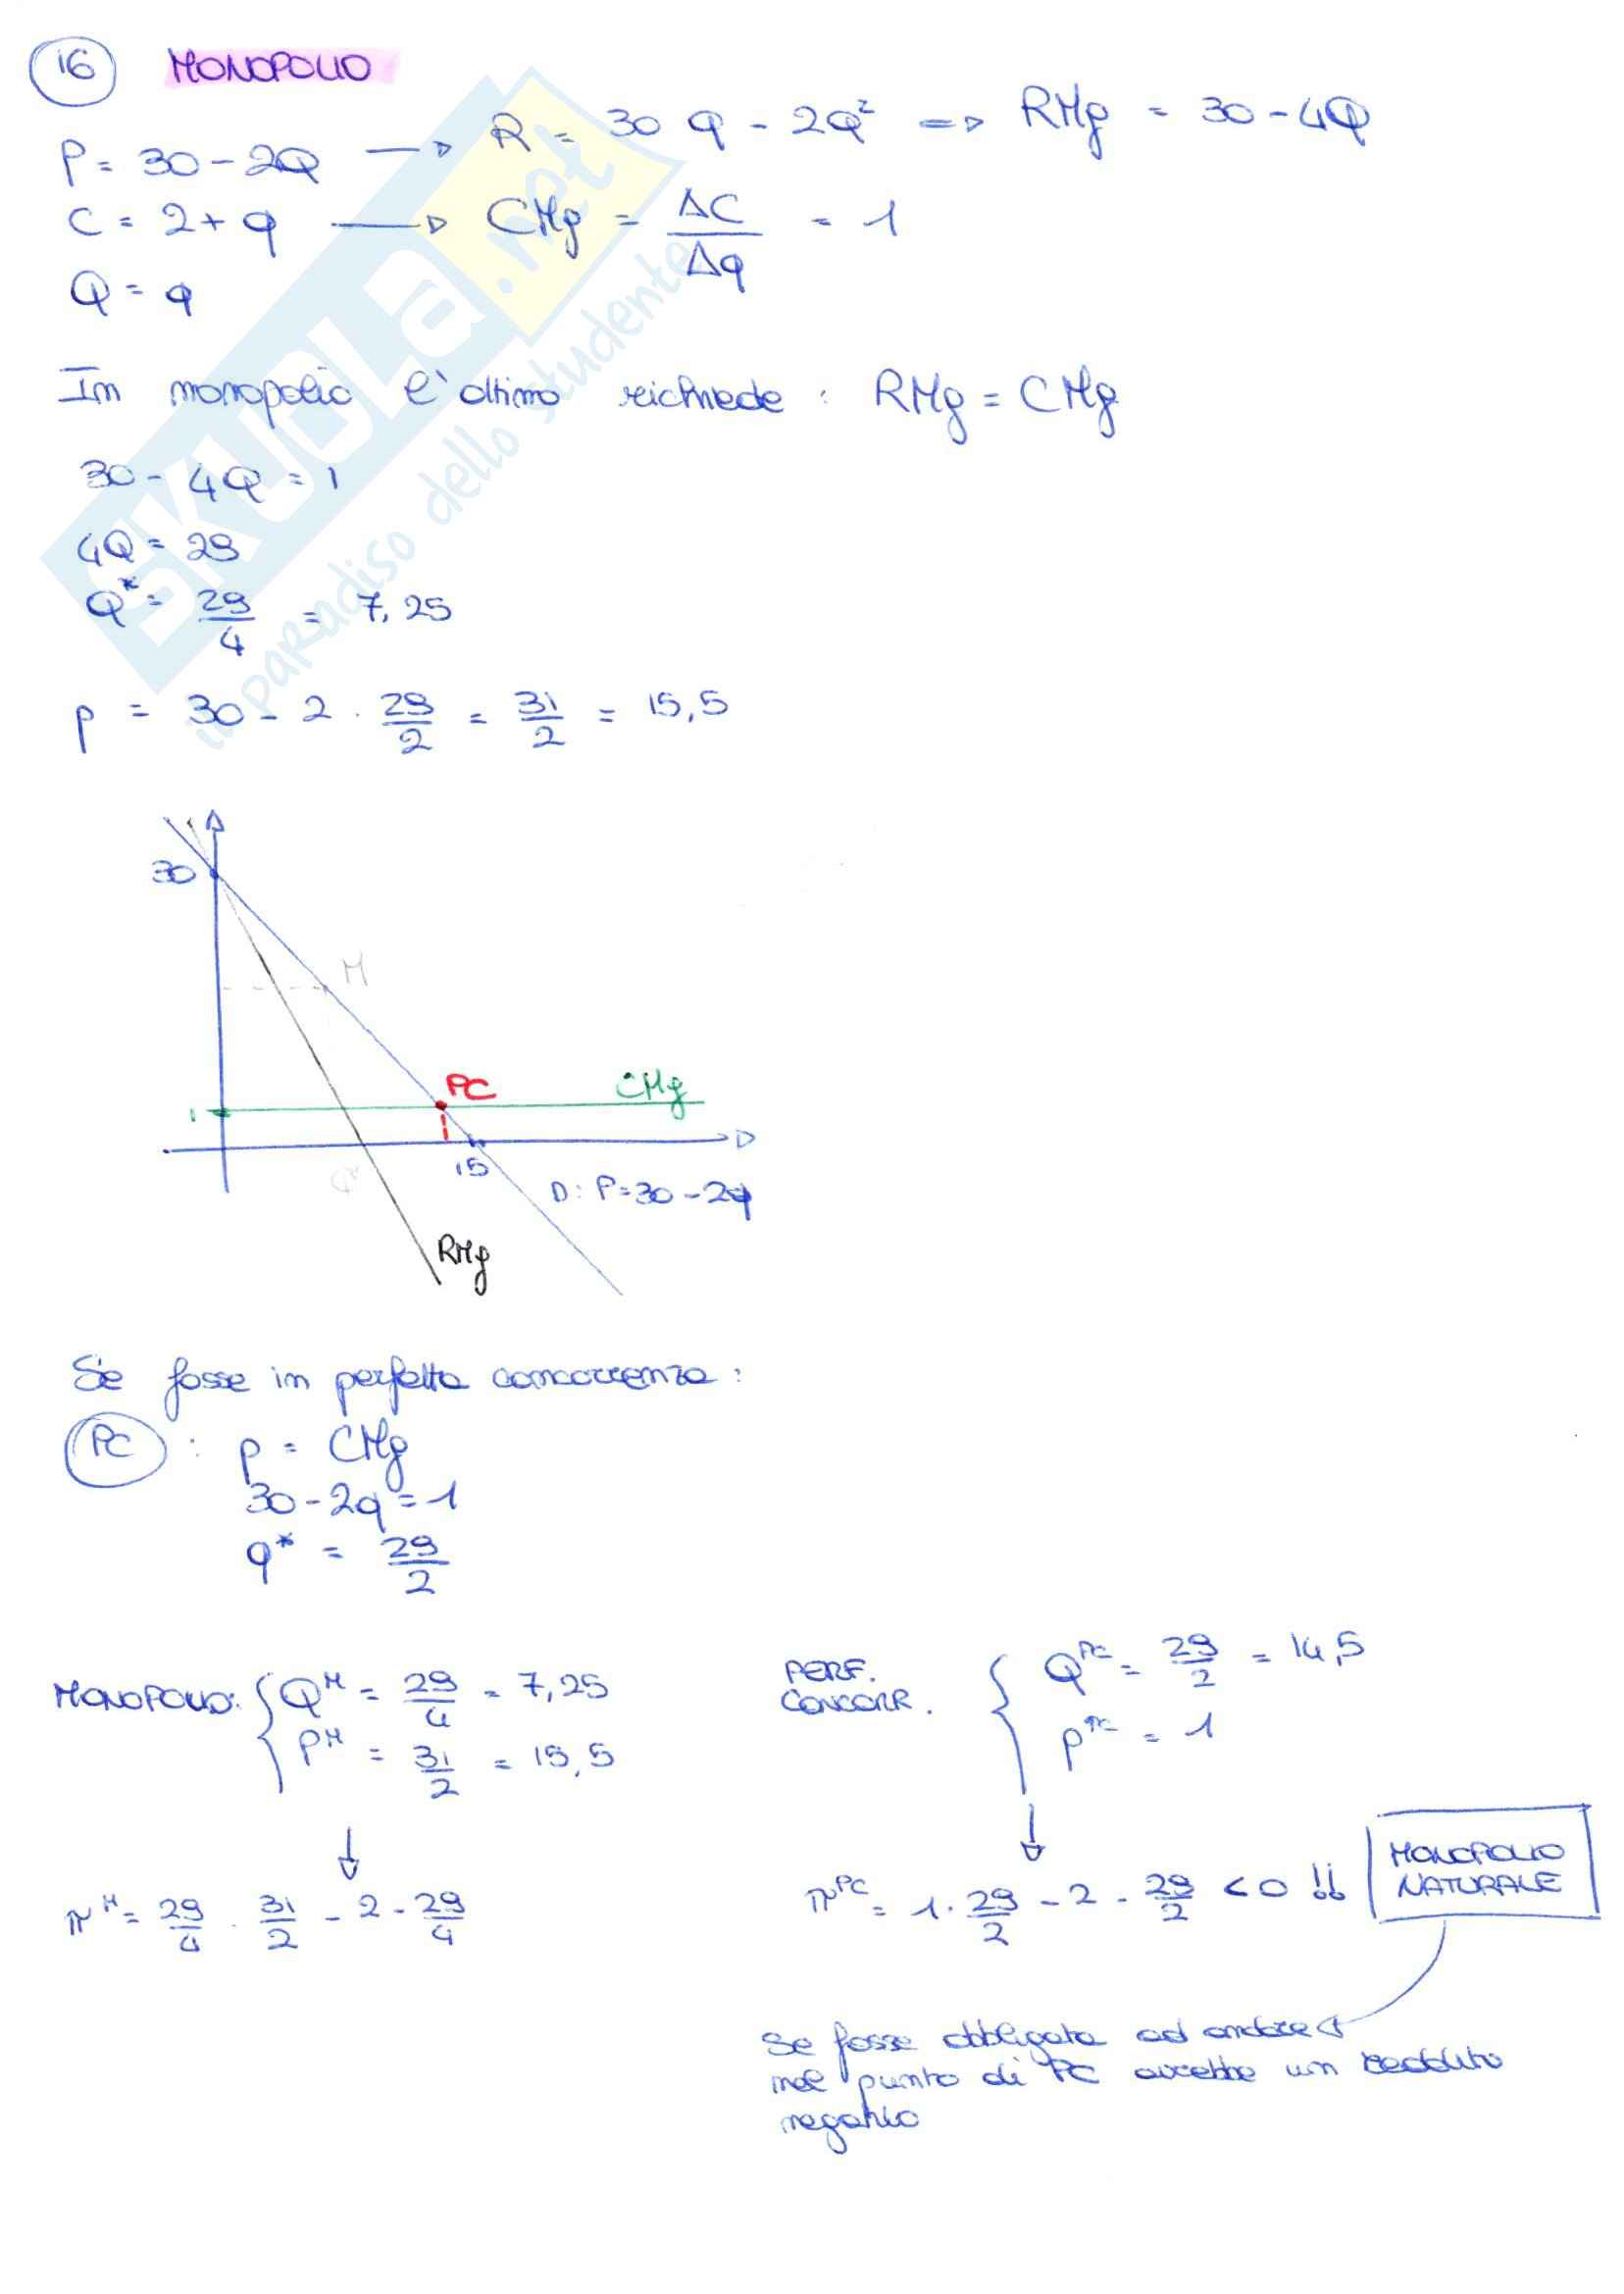 16 MONOPOLIO
P = 30 - 2Q → R = 30 q - 2q² => RMg = 30 - 4Q
C = 2 + q → CMg = ΔC/Δq = 1
Q = q
SKUOLA.net
il paradiso dello studente
In monopolio l'ottimo richiede : RMg = CMg
30 - 4Q = 1
4Q = 29
Q* = 29/4 = 7,25
p = 30 - 2 · 29/2 = 31/2 = 15,5
30
M
PC
CMg
1
Q*
15
D: P = 30 - 2q
RMg
Se fosse in perfetta concorrenza :
PC : p = CMg
30 - 2q = 1
q* = 29/2
MONOPOLIO: { Qᴹ = 29/4 = 7,25
Pᴹ = 31/2 = 15,5
PERF. CONCORR. { Qᴾᶜ = 29/2 = 14,5
pᴾᶜ = 1
πᴹ = 29/4 · 31/2 - 2 - 29/4
πᴾᶜ = 1 · 29/2 - 2 - 29/2 < 0 !!
MONOPOLIO
NATURALE
Se fosse obbligata ad andare
nel punto di PC avrebbe un reddito
negativo